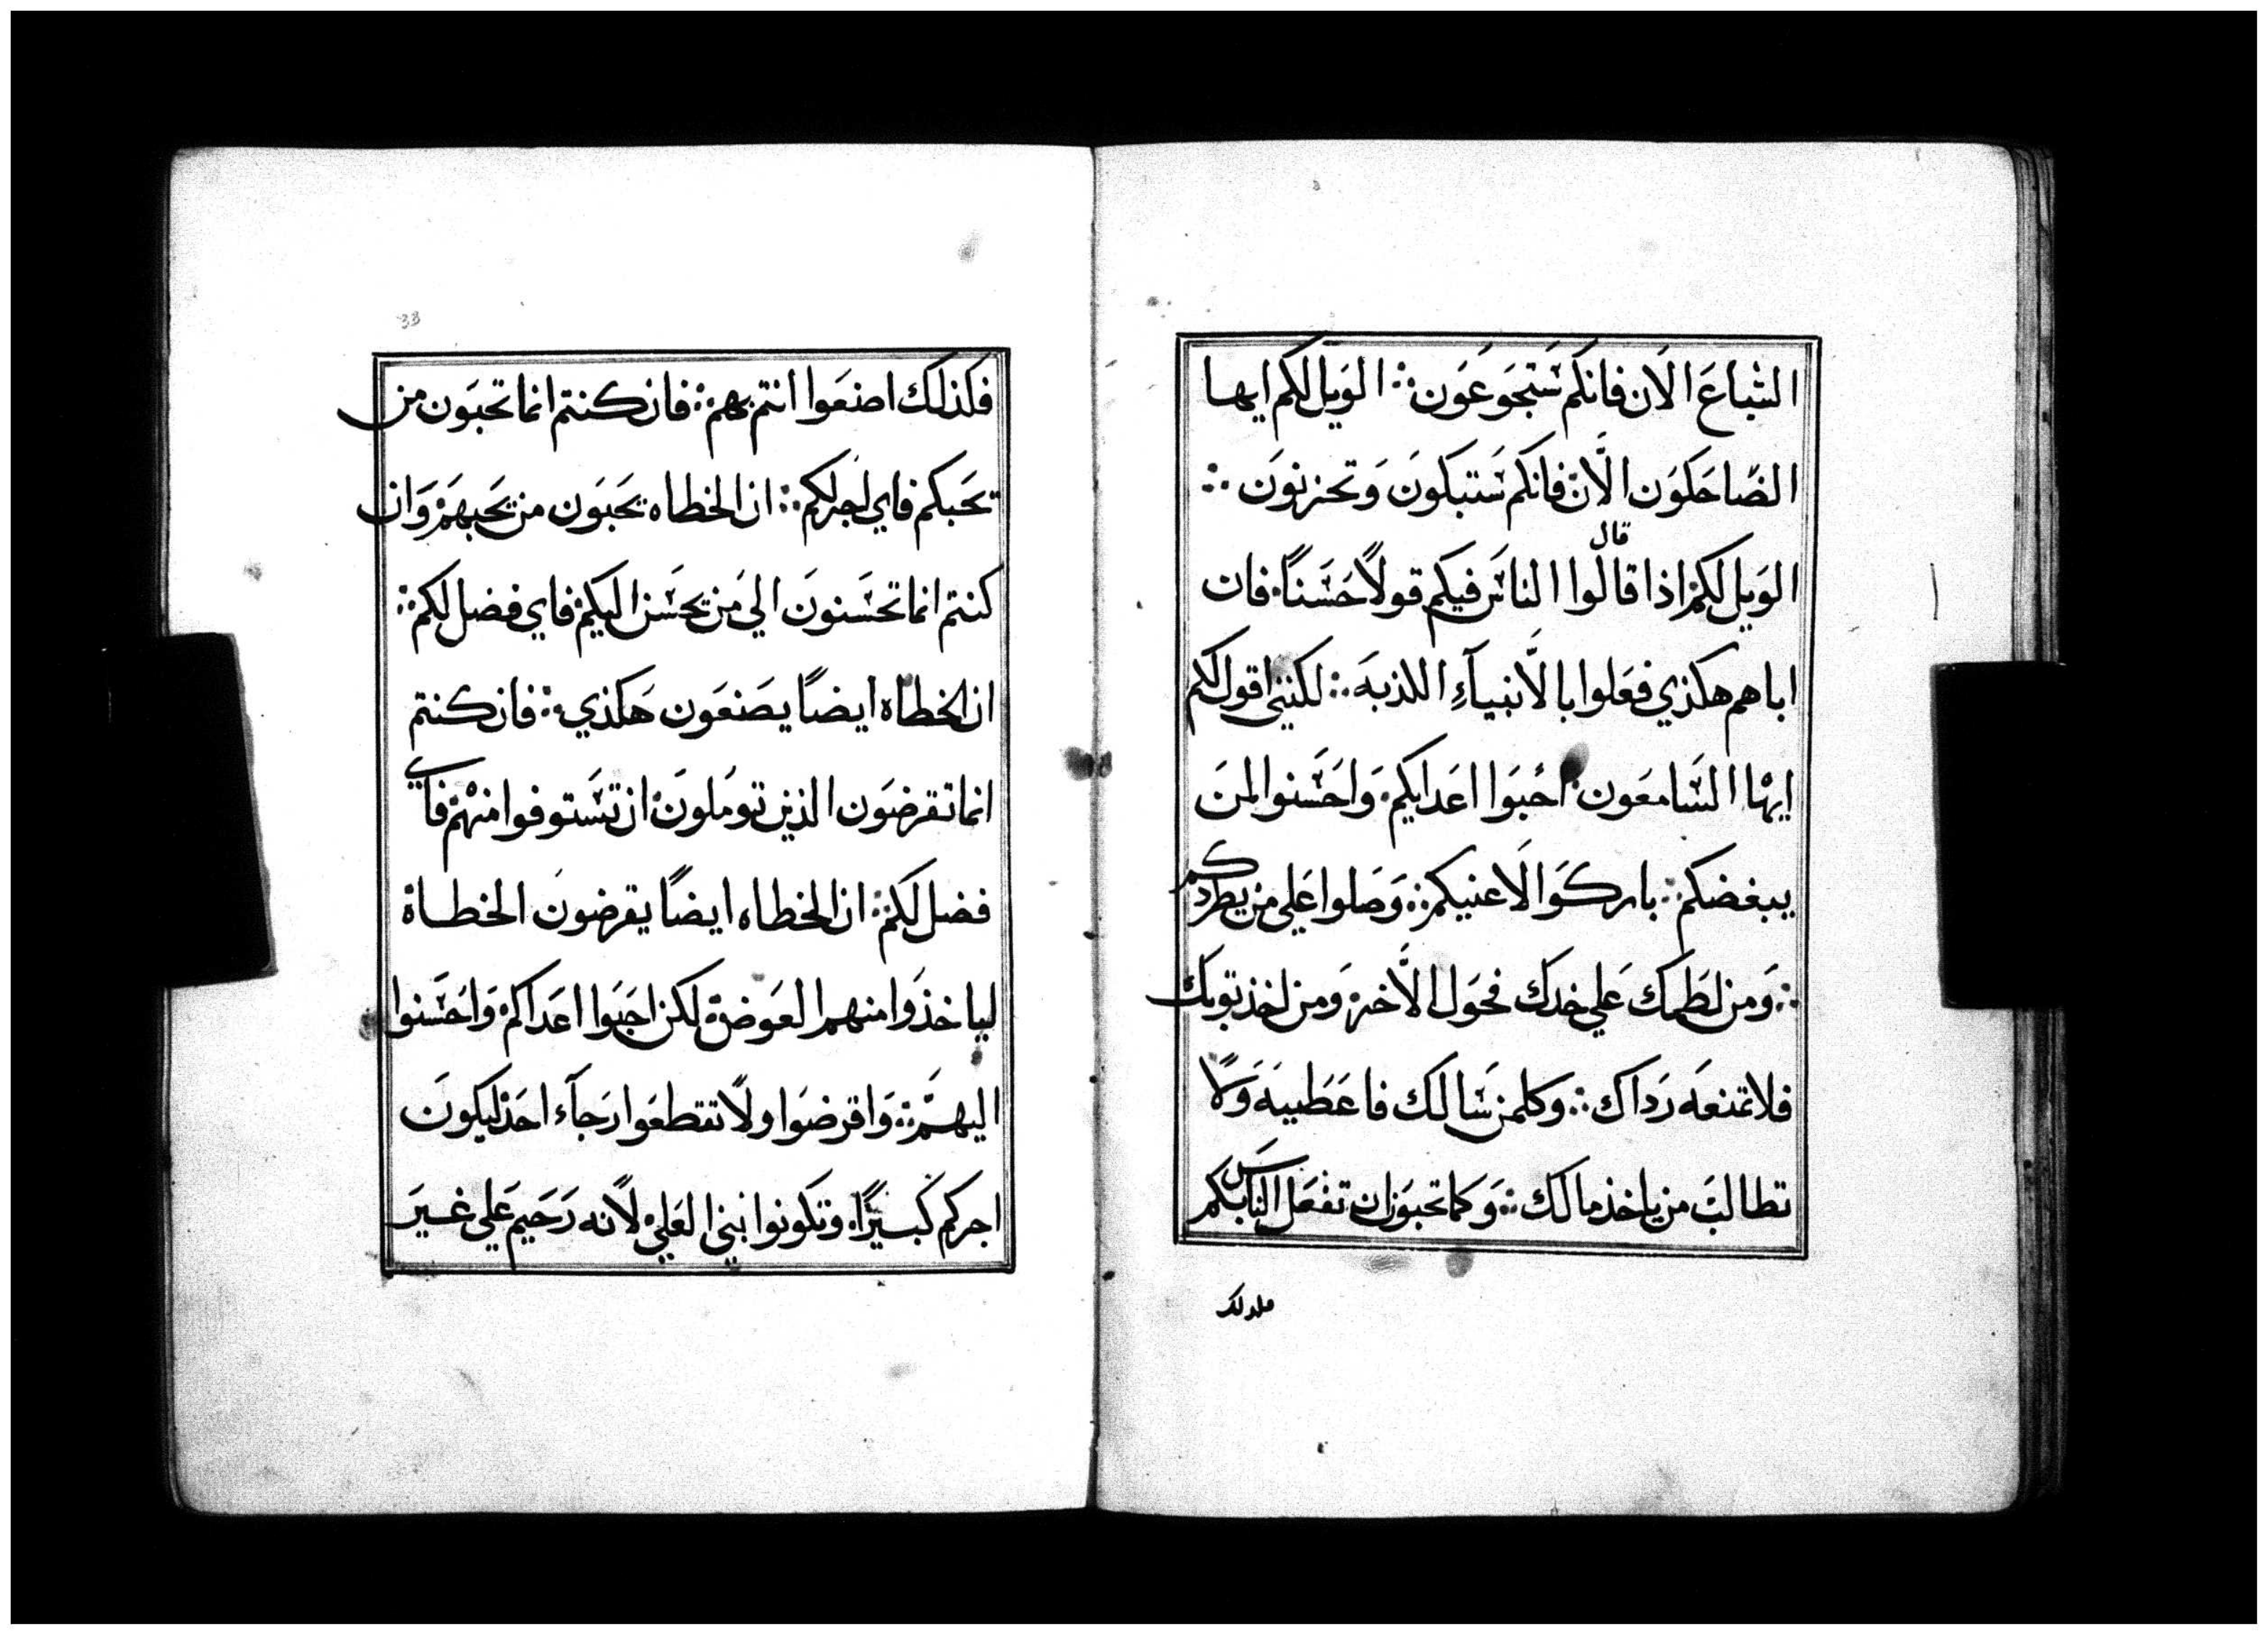 الشباعَ الاَن فانكم سَتجوَعَون ؞ الوَيل لكم ايها
الضاحَكوَن الاَّن فانكم سَتبكونَ وَتحزنونَ ؞
قال
الوَيل لكم اذا قالوا الناسَ فيكم قولاً حَسَناً فان
اباهم هكذي فعَلوا بالاَّنبيآءِ اللذبهَ ؞ لكنني اقول لكم
ايها السَامعَون احُبوَا اعَدايكم وَاحَسَنوا لمنَ
يبغضكم ؞ باركوَا لاَعنيكم ؞ وَصَلوا عَلي من يطردكم
؞ وَمن لطَمك عَلي خدك فحَول الاَّخر وَمن اخذ توبك
فلا تمنعَه رَداك ؞ وكلمن سَالك فاعَطيهَ وَلاً
تطالبَ من ياخذ مالك ؞ وَكما تحبوَن ان تفعَل الناسَ بكم
فلدلك
33
فكذلك اصنعَوا انتم بهم ؞ فان كنتم انما تحبوَن من
تحَبكم فاي اجر لكم ؞ ان الخطاه يحَبوَن من يحَبهمَ وَان
كنتم انما تحسَنونَ الي مَن يحسَن اليكم فاي فضل لكم ؞
ان الخطاه ايضاً يصَنعَون هَكذي ؞ فان كنتم
انما تقرضوَن الذين توملونَ ان تسَتوفوا منهم فاي
فضل لكم ؞ ان الخطاه ايضاً يقرضونَ الخطاة
لياخذوَا منهم العوَض لكن احَبوَا اعَداكم وَاحَسَنوا
اليهمَ ؞ وَاقرضوَا ولاً تقطعوَا رَجآء احَد ليكونَ
اجركم كبيرًا وتكونوا بني العَلي لاًنه رَحَيم عَلي غيرَ